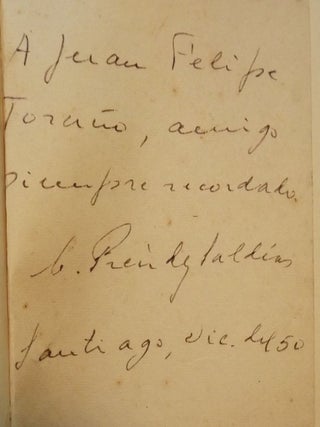 A Juan Felipe
Toruño, amigo
siempre recordado.
C. Préndez Saldías
Santiago, Dic. del 50